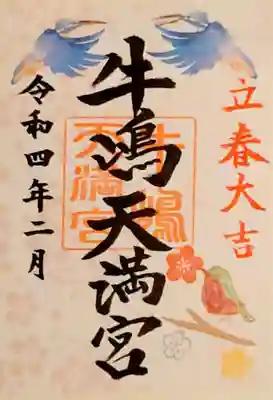 立春大吉
牛嶋天満宮
令和四年二月
牛嶋
天満宮